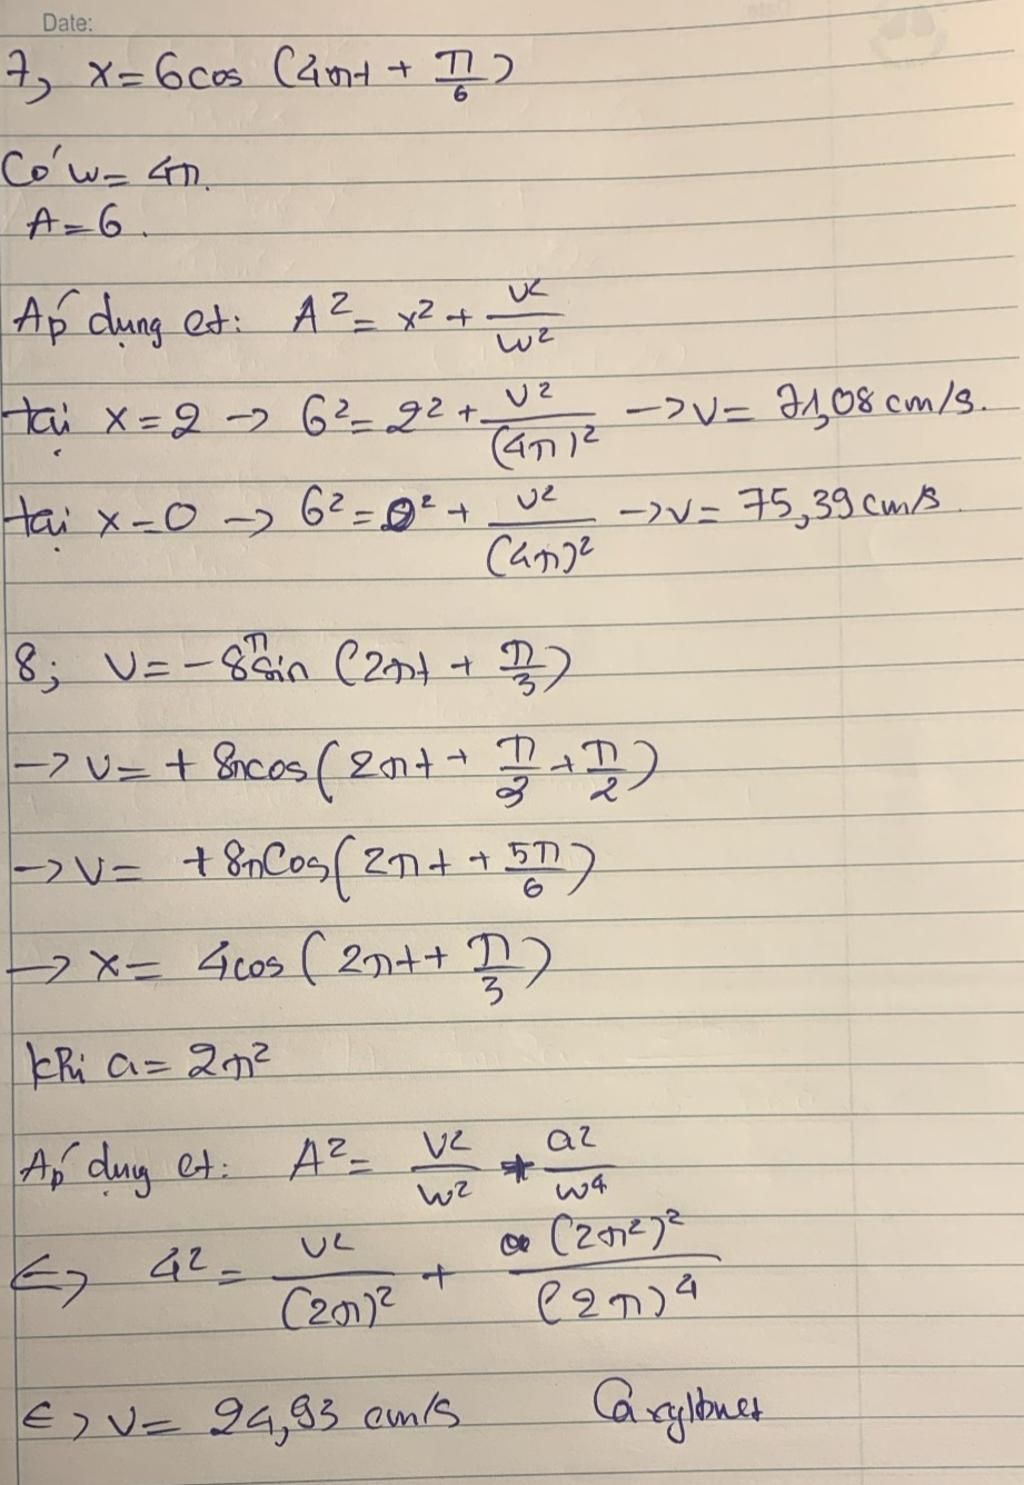 Date:
7, x = 6cos (4πt + π/6)
Có w = 4π.
A = 6.
Áp dụng ct: A² = x² + v²/w²
tại x = 2 → 6² = 2² + v²/(4π)² → v = 71,08 cm/s.
tại x = 0 → 6² = 0² + v²/(4π)² → v = 75,39 cm/s
8; v = -8π sin (2πt + π/3)
→ v = + 8πcos(2πt + π/3 + π/2)
→ v = + 8πCos(2πt + 5π/6)
→ x = 4cos (2πt + π/3)
khi a = 2π²
Áp dụg ct: A² = v²/w² + a²/w⁴
⇔ 4² = v²/(2π)² + (2π²)²/(2π)⁴
⇔ v = 24,33 cm/s